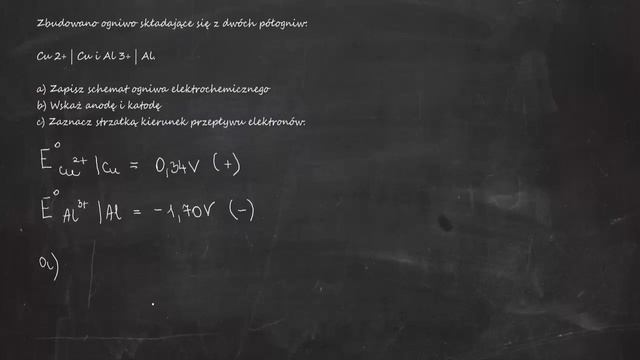 Zbudowano ogniwo składające się z dwóch półogniw:
Cu 2+ | Cu i Al 3+ | Al.
a) Zapisz schemat ogniwa elektrochemicznego
b) Wskaż anodę i katodę
c) Zaznacz strzałką kierunek przepływu elektronów:
E⁰ Cu²⁺ | Cu = 0,34V (+)
E⁰ Al³⁺ | Al = -1,70V (-)
a)